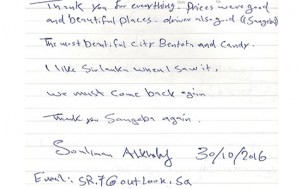 Thank you for everything. Prices were good
and beautiful places. driver also good (Sangaba)
The most beautiful city Bentota and Candy.
I like Sirlanka when I saw it,
we must come back again
Thank you Sangaba again.
30/10/2016
Email: